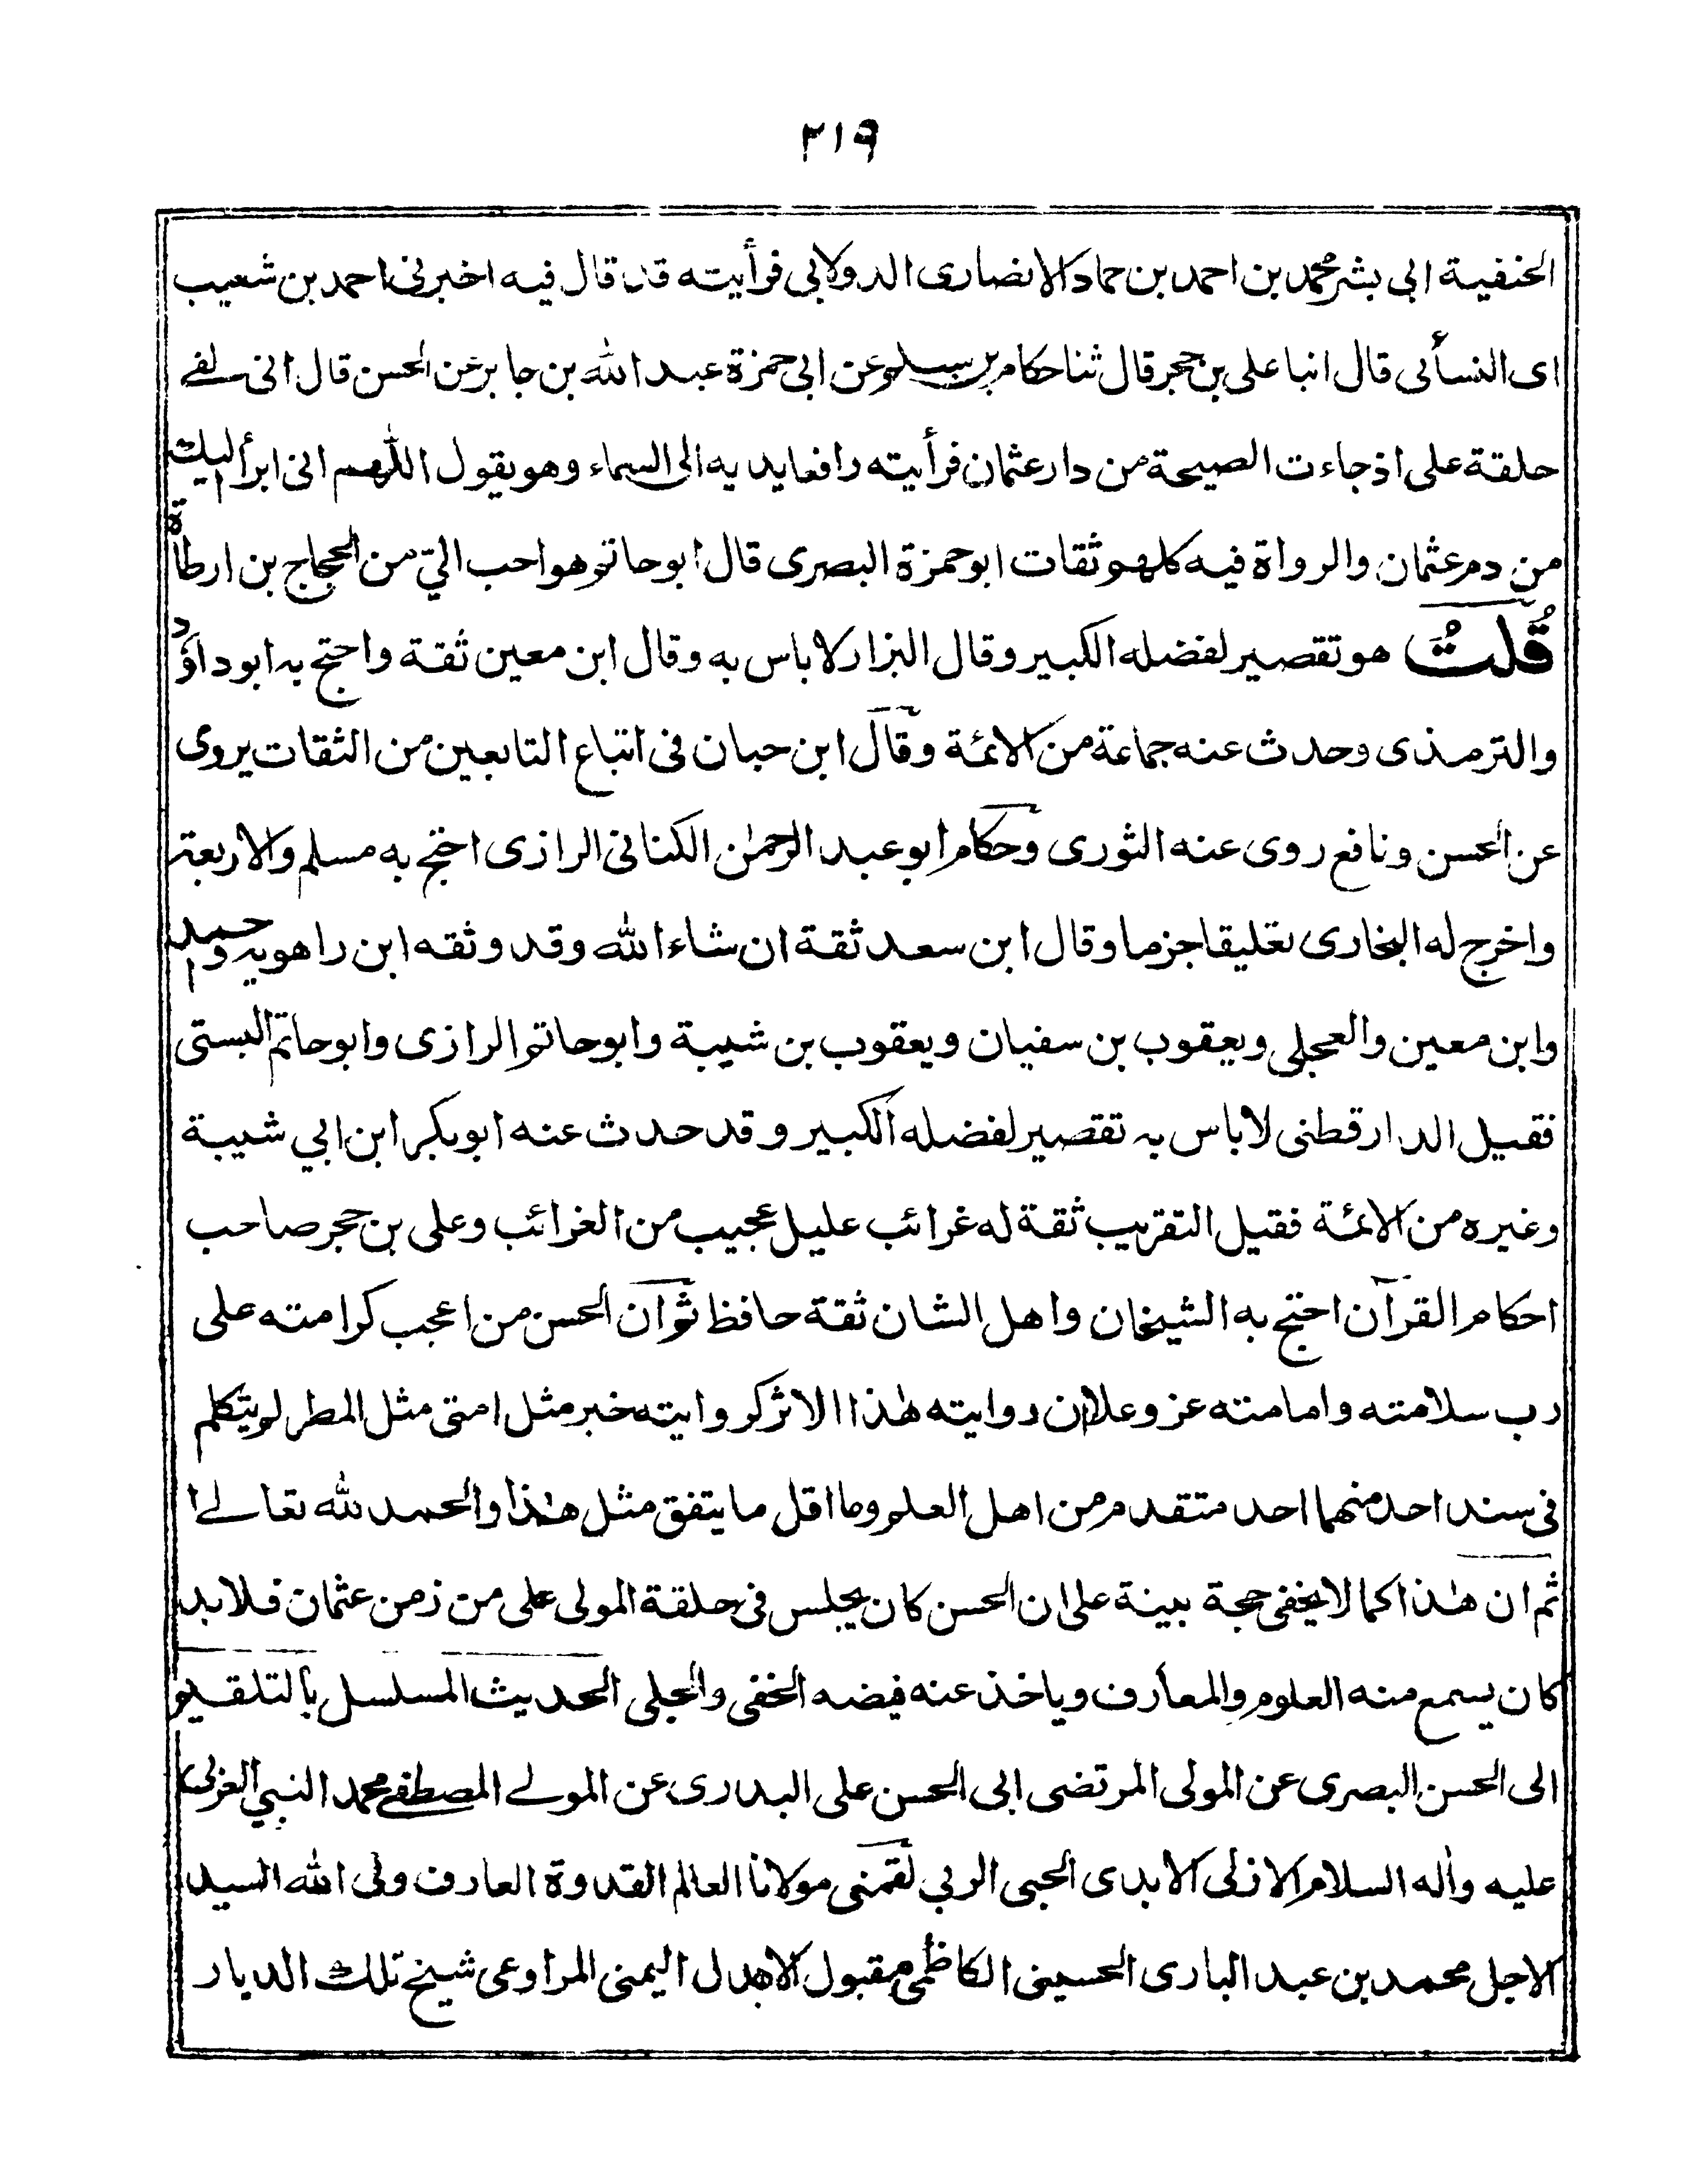 ٣١٩
الحنفية ابي بشر محمد بن احمد بن حماد الانصاری الدولابی فرأيته قد قال فيه اخبرنی احمد بن شعيب
ای النسأئی قال انبا علی بن حجر قال ثنا حكام بن سلم عن ابی حمزة عبد الله بن جابر عن الحسن قال انی لفے
حلقة علی اذ جاءت الصيحة من دار عثمان فرأيته رافعا يديه الی السماء وهو يقول اللهم انی ابرأ اليك
من دم عثمان والرواة فيه كلهم ثقات ابو حمزة البصری قال ابو حاتم هو احب الیّ من الحجاج بن ارطاة
قُلتُ هو تقصير لفضله الكبير وقال البزار لاباس به وقال ابن معين ثقة واحتج به ابو داؤد
والترمذی وحدث عنه جماعة من الائمة وقال ابن حبان فی اتباع التابعين من الثقات يروی
عن الحسن ونافع روی عنه الثوری وحكام ابو عبد الرحمٰن الكنانی الرازی احتج به مسلم والاربعة
واخرج له البخاری تعليقا جزما وقال ابن سعد ثقة ان شاء الله وقد وثقه ابن راهويه واحمد
وابن معين والعجلی ويعقوب بن سفيان ويعقوب بن شيبة وابو حاتم الرازی وابو حاتم البستی
فقيل الدارقطنی لاباس به تقصير لفضله الكبير وقد حدث عنه ابو بكر ابن ابي شيبة
وغيره من الائمة فقيل التقريب ثقة له غرائب عليل عجيب من الغرائب وعلی بن حجر صاحب
احكام القرآن احتج به الشيخان واهل الشان ثقة حافظ ثم ان الحسن من اعجب كرامته علی
رب سلامته وامامته عز وعلا ان روايته هٰذا الاثر كروايته خبر مثل امتی مثل المطر لم يتكلم
فی سند احد منهما احد متقدم من اهل العلم وما اقل ما يتفق مثل هٰذا والحمد لله تعالے
ثم ان هٰذا كما لا يخفی حجة بينة علی ان الحسن كان يجلس فی حلقة المولی علی من زمن عثمان فلا بد
كان يسمع منه العلوم والمعارف وياخذ عنه فيضه الخفی والجلی الحديث المسلسل بالتلقيم
الی الحسن البصری عن المولی المرتضی ابی الحسن علی البدری عن المولے المصطفے محمد النبي العزلی
عليه واٰله السلام الازلی الابدی الحبی الربی لقمنی مولانا العالم القدوة العارف ولی الله السيد
الاجل محمد بن عبد الباری الحسينی الكاظمی مقبول الاهدل اليمنی المراوعی شيخ تلك الديار